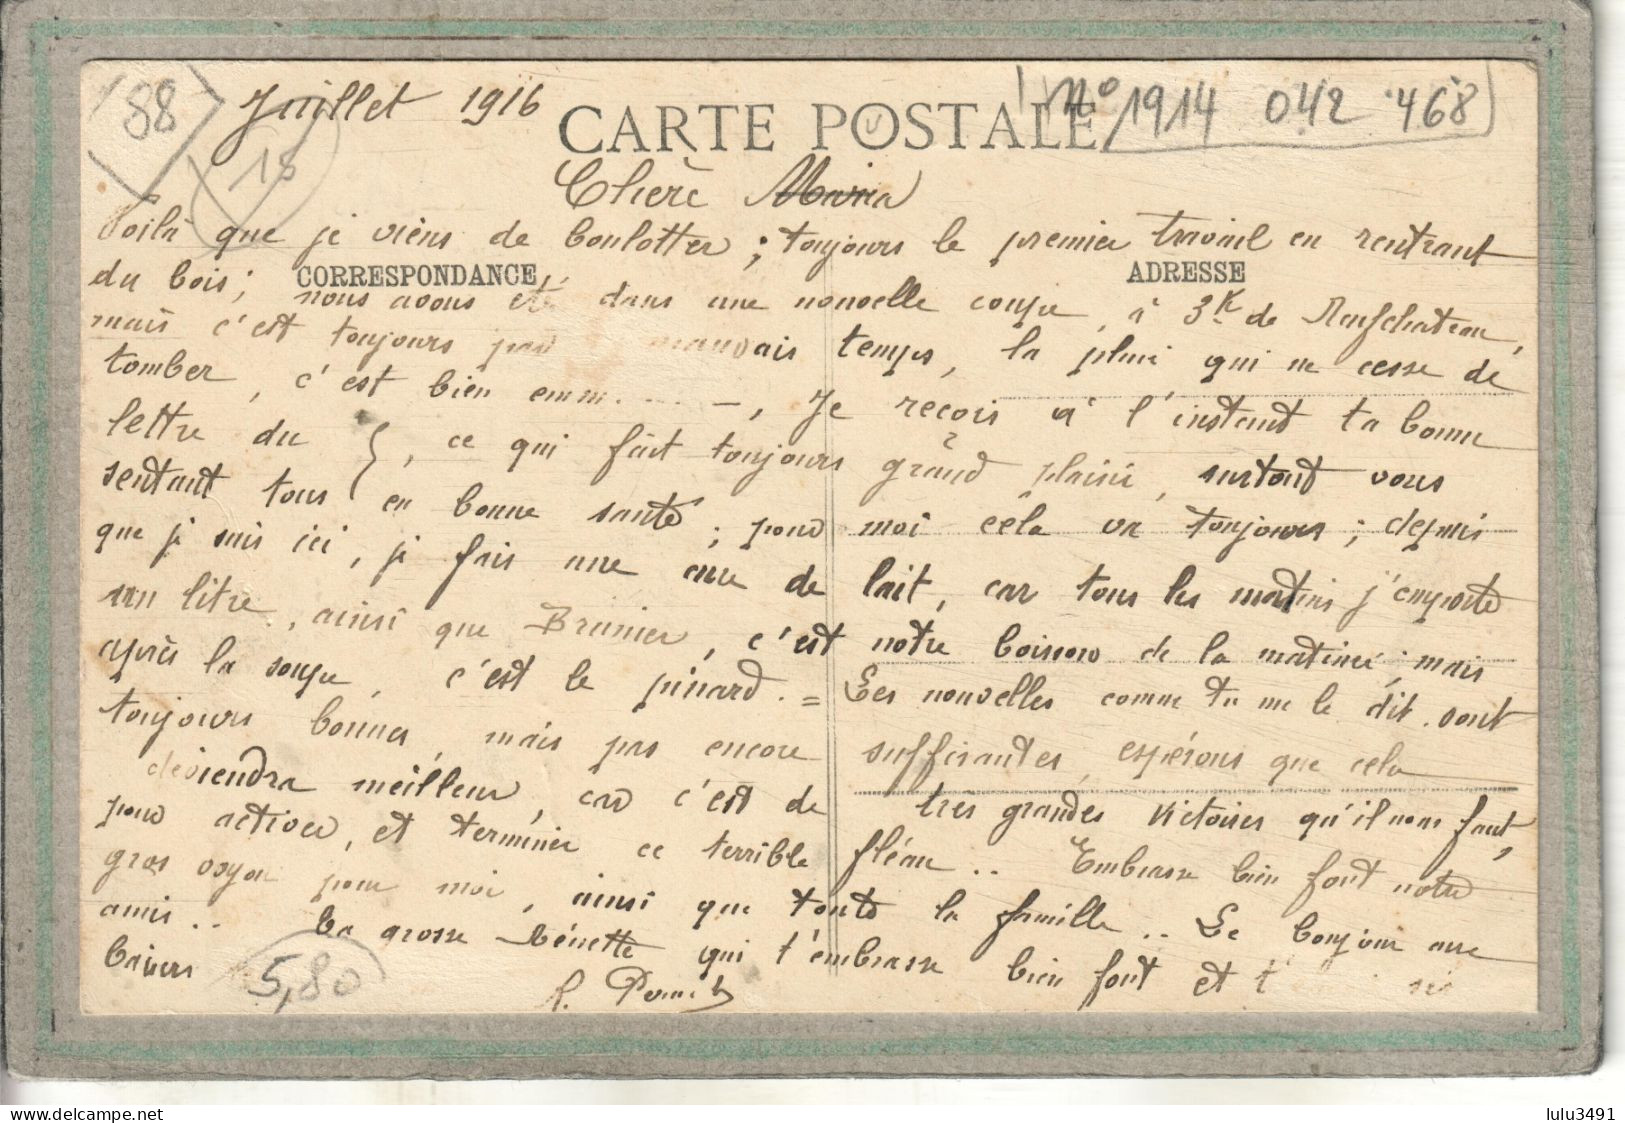 88
Juillet 1916
CARTE POSTALE
No 1914 042 468
18
Chère Maria
Voilà que je viens de boulotter ; toujours le premier travail en rentrant
CORRESPONDANCE
ADRESSE
du bois ; nous avons été dans une nouvelle coupe, à 3K de Neufchateau,
mais c'est toujours mauvais temps, la pluie qui ne cesse de
tomber, c'est bien emm.... —, Je reçois à l'instant ta bonne
lettre du 5, ce qui fait toujours grand plaisir, surtout vous
sentant tous en bonne santé ; pour moi cela va toujours ; depuis
que je suis ici, je fais une cure de lait, car tous les matins j'emporte
un litre, ainsi que Brunier, c'est notre boisson de la matinée ; mais
après la soupe, c'est le pinard. = Les nouvelles comme tu me le dit. sont
toujours bonnes, mais pas encore suffisantes, espérons que cela
deviendra meilleur, car c'est de très grandes victoires qu'il nous faut,
pour activer, et terminer ce terrible fléau .. Embrasse bien fort notre
gros pour moi, ainsi que toute la famille .. Le bonjour aux
amis .. La grosse bénette qui t'embrasse bien fort et
baisers
5,80
lulu3491
www.delcampe.net